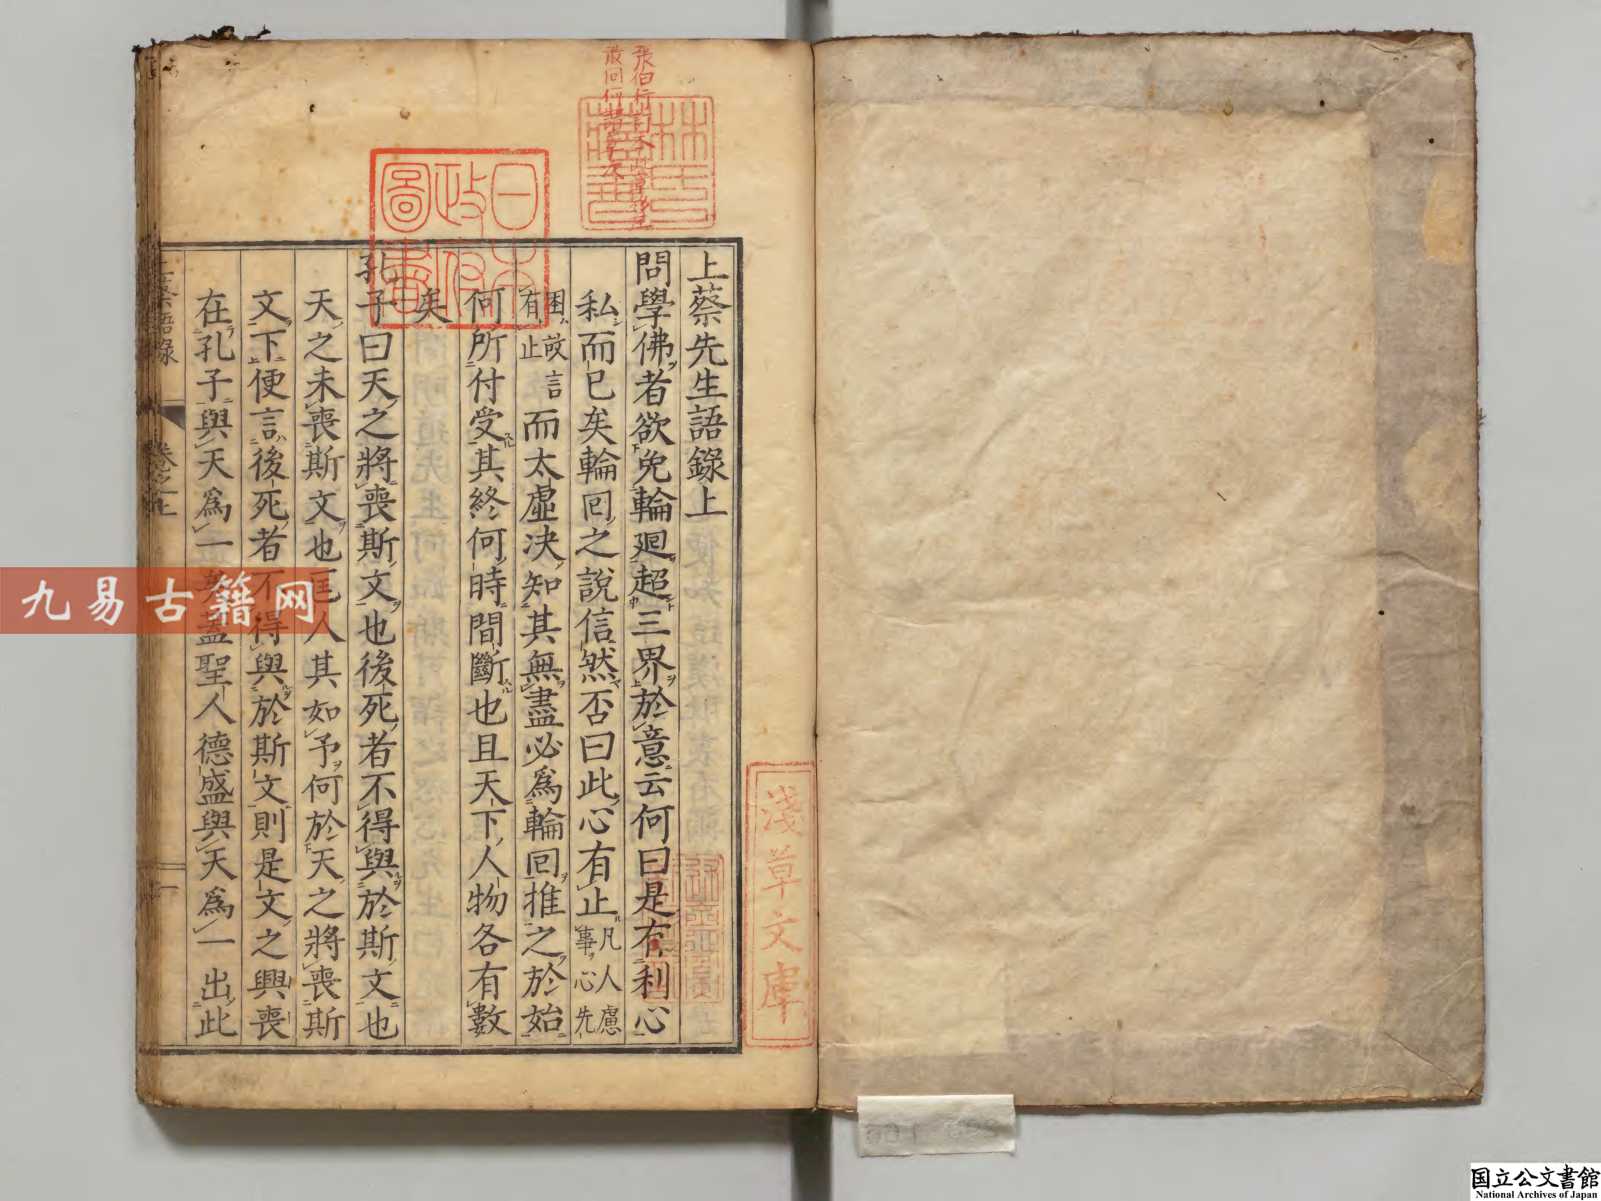 上蔡先生語錄上
問學佛者欲免輪廻超三界於意云何曰是有利心
私而已矣輪回之說信然否曰此心有止凡人慮事心先
困故言有止而太虛決知其無盡必爲輪回推之於始
何所付受其終何時間斷也且天下人物各有數
矣
孔子曰天之將喪斯文也後死者不得與於斯文也
天之未喪斯文也匡人其如予何於天之將喪斯
文下便言後死者不得與於斯文則是文之興喪
在孔子與天爲一矣蓋聖人德盛與天爲一出此
上蔡語錄
日本政府圖書
林氏藏書
淺草文庫
九易古籍网
国立公文書館
National Archives of Japan